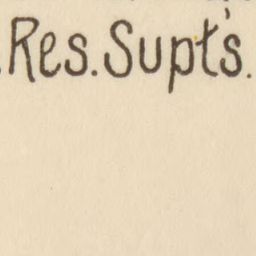 Res. Supt's.